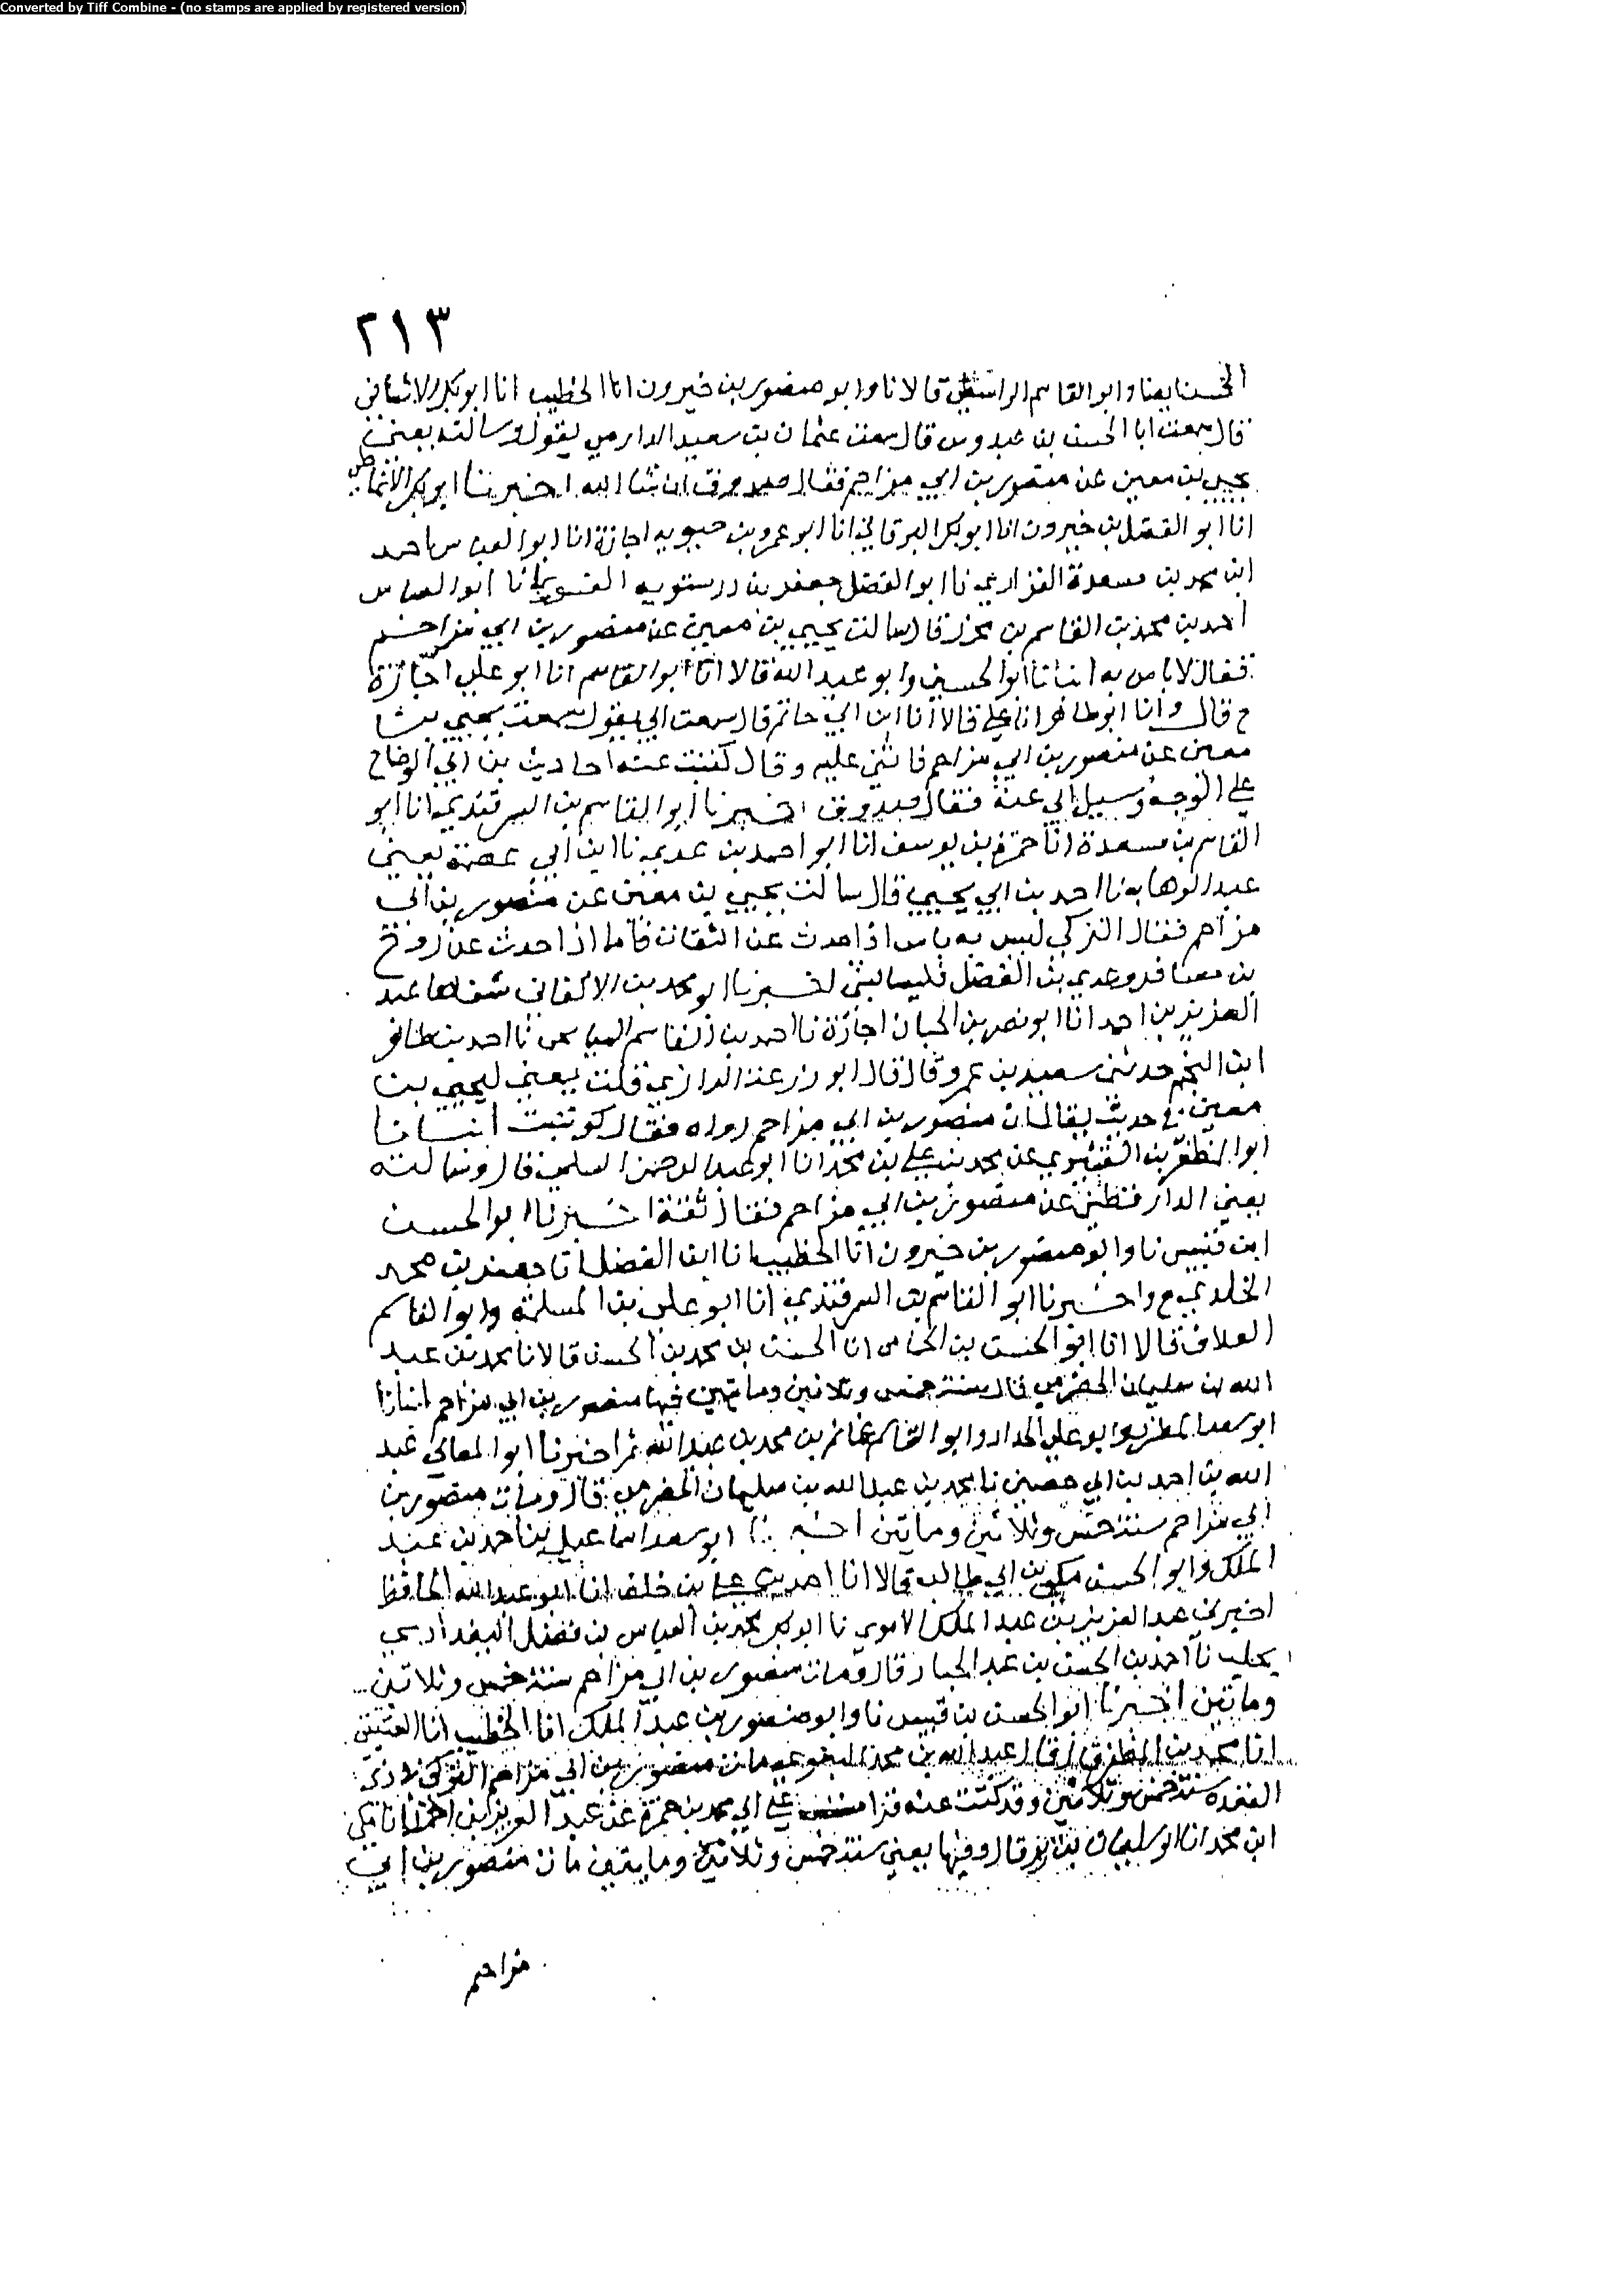 Converted by Tiff Combine - (no stamps are applied by registered version)
٢١٣
وابو القاسم قالا نا وابو منصور بن خيرون انا الخطيب انا ابو بكر الاشناني
قال سمعت ابا الحسن بن عبدوس قال سمعت عثمان بن سعيد الدارمي يقول وسالته يعني
يحيى بن معين عن منصور بن ابي مزاحم فقال صدوق ان شا الله اخبرنا ابو بكر
انا ابو الفضل بن خيرون انا ابو بكر البرقاني انا ابو عمرو بن حيويه اجازة انا ابو العباس احمد
ابن محمد بن مسعدة الفزاري نا ابو الفضل جعفر بن درستويه الفسوي نا ابو العباس
احمد بن محمد بن القاسم بن محرز قال سالت يحيى بن معين عن منصور بن ابي مزاحم
فقال لا باس به انبانا ابو الحسين وابو عبد الله قالا انا ابو القاسم انا ابو علي اجازة
ح قال وانا ابو طاهر انا علي قالا انا ابن ابي حاتم قال سمعت ابي يقول سمعت يحيى بن
معين عن منصور بن ابي مزاحم فاثنى عليه وقال كتبت عنه احاديث بن ابي الوضاح
على الوجه وسيل ابي عنه فقال صدوق اخبرنا ابو القاسم بن السمرقندي انا ابو
القاسم بن مسعدة انا حمزة بن يوسف انا ابو احمد بن عدي نا ابن ابي عصمة يعني
عبد الوهاب نا احمد بن ابي يحيى قال سالت يحيى بن معين عن منصور بن ابي
مزاحم فقال التركي ليس به باس اذا حدث عن الثقات فاما اذا حدث عن روح
بن مسافر وعدي بن الفضل فليسا بشي اخبرنا ابو محمد بن الاكفاني شفاها عبد
العزيز بن احمد انا ابو نصر بن الجبان اجازة نا احمد بن القاسم نا احمد بن طاهر
ابن النجم حدثني سعيد بن عمرو قال قال ابو زرعة الرازي قلت يعني ليحيى بن
معين في حديث يقال ان منصور بن ابي مزاحم رواه فقال كو تبت انبانا
ابو المظفر بن القشيري عن محمد بن علي بن محمد انا ابو عبد الرحمن السلمي قال وسالته
يعني الدارقطني عن منصور بن ابي مزاحم فقال ثقة اخبرنا ابو الحسن
ابن قبيس نا وابو منصور بن خيرون انا الخطيب انا ابن الفضل انا جعفر بن محمد
الخلدي ح واخبرنا ابو القاسم بن السمرقندي انا ابو علي بن المسلمة وابو القاسم
العلاف قالا انا ابو الحسن بن الحمامي انا الحسن بن محمد بن الحسن قالا نا محمد بن عبد
الله بن سليمان الحضرمي قال سنة خمس وثلاثين ومايتين فيها منصور بن ابي مزاحم انبانا
ابو سعد المطرز وابو علي الحداد وابو القاسم غانم بن محمد بن عبد الله ثم اخبرنا ابو المعالي عبد
الله بن احمد بن ابي حصين نا محمد بن عبد الله بن سليمان الحضرمي قال ومات منصور بن
ابي مزاحم سنة خمس وثلاثين ومايتين ابو سعد اسماعيل بن احمد بن عبد
الملك وابو الحسن مكي بن ابي طالب قالا انا احمد بن علي بن خلف انا ابو عبد الله الحافظ
اخبرني عبد العزيز بن عبد الملك الاموي نا ابو بكر محمد بن العباس بن فضل البغدادي
بحلب نا احمد بن الحسن بن عبد الجبار قال ومات منصور بن ابي مزاحم سنة خمس وثلاثين
ومايتين اخبرنا ابو الحسن بن قبيس نا وابو منصور بن عبد الملك انا الخطيب انا العتيقي
انا محمد بن المظفر قال قال عبد الله بن محمد البغوي مات منصور بن ابي مزاحم التركي في ذي
القعدة سنة خمس وثلاثين وقد كتبت عنه قرات على ابي محمد بن حمزة عن عبد العزيز بن احمد انا مكي
ابن محمد انا ابو سليمان بن زبر قال وفيها يعني سنة خمس وثلاثين ومايتين مات منصور بن ابي
مزاحم